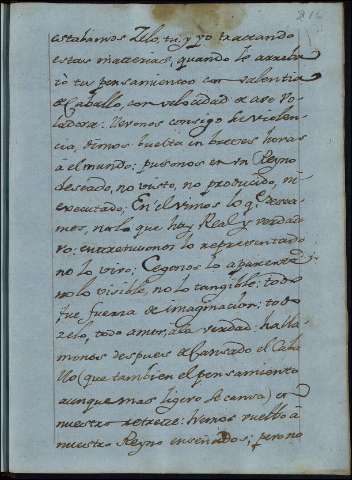 estabamos Zelo, tu, y yo tratando
estas materias, quando le arreba
tò tus pensamientos con valentia
de Caballo, con velocidad de ave Vo
ladora: llevonos consigo la violen
cia, dimos buelta en breves horas
à el mundo: pusonos en un Reyno
deseado, no visto, no producido, ni
executado; En el vimos lo q.e desea
mos, no lo que hay Real y verdade
ro: entretuvonos lo representado
no lo vivo; Cegonos lo aparente
no lo visible, no lo tangible; todo
fue fuerza de imaginacion; todo
zelo, todo amor, à la verdad: halla
monos despues de Cansado el Caba
llo (que tambien el pensamiento
aunque mas ligero se cansa) en
nuestro retrete: hemos vuelto à
nuestro Reyno enseñados; pero no